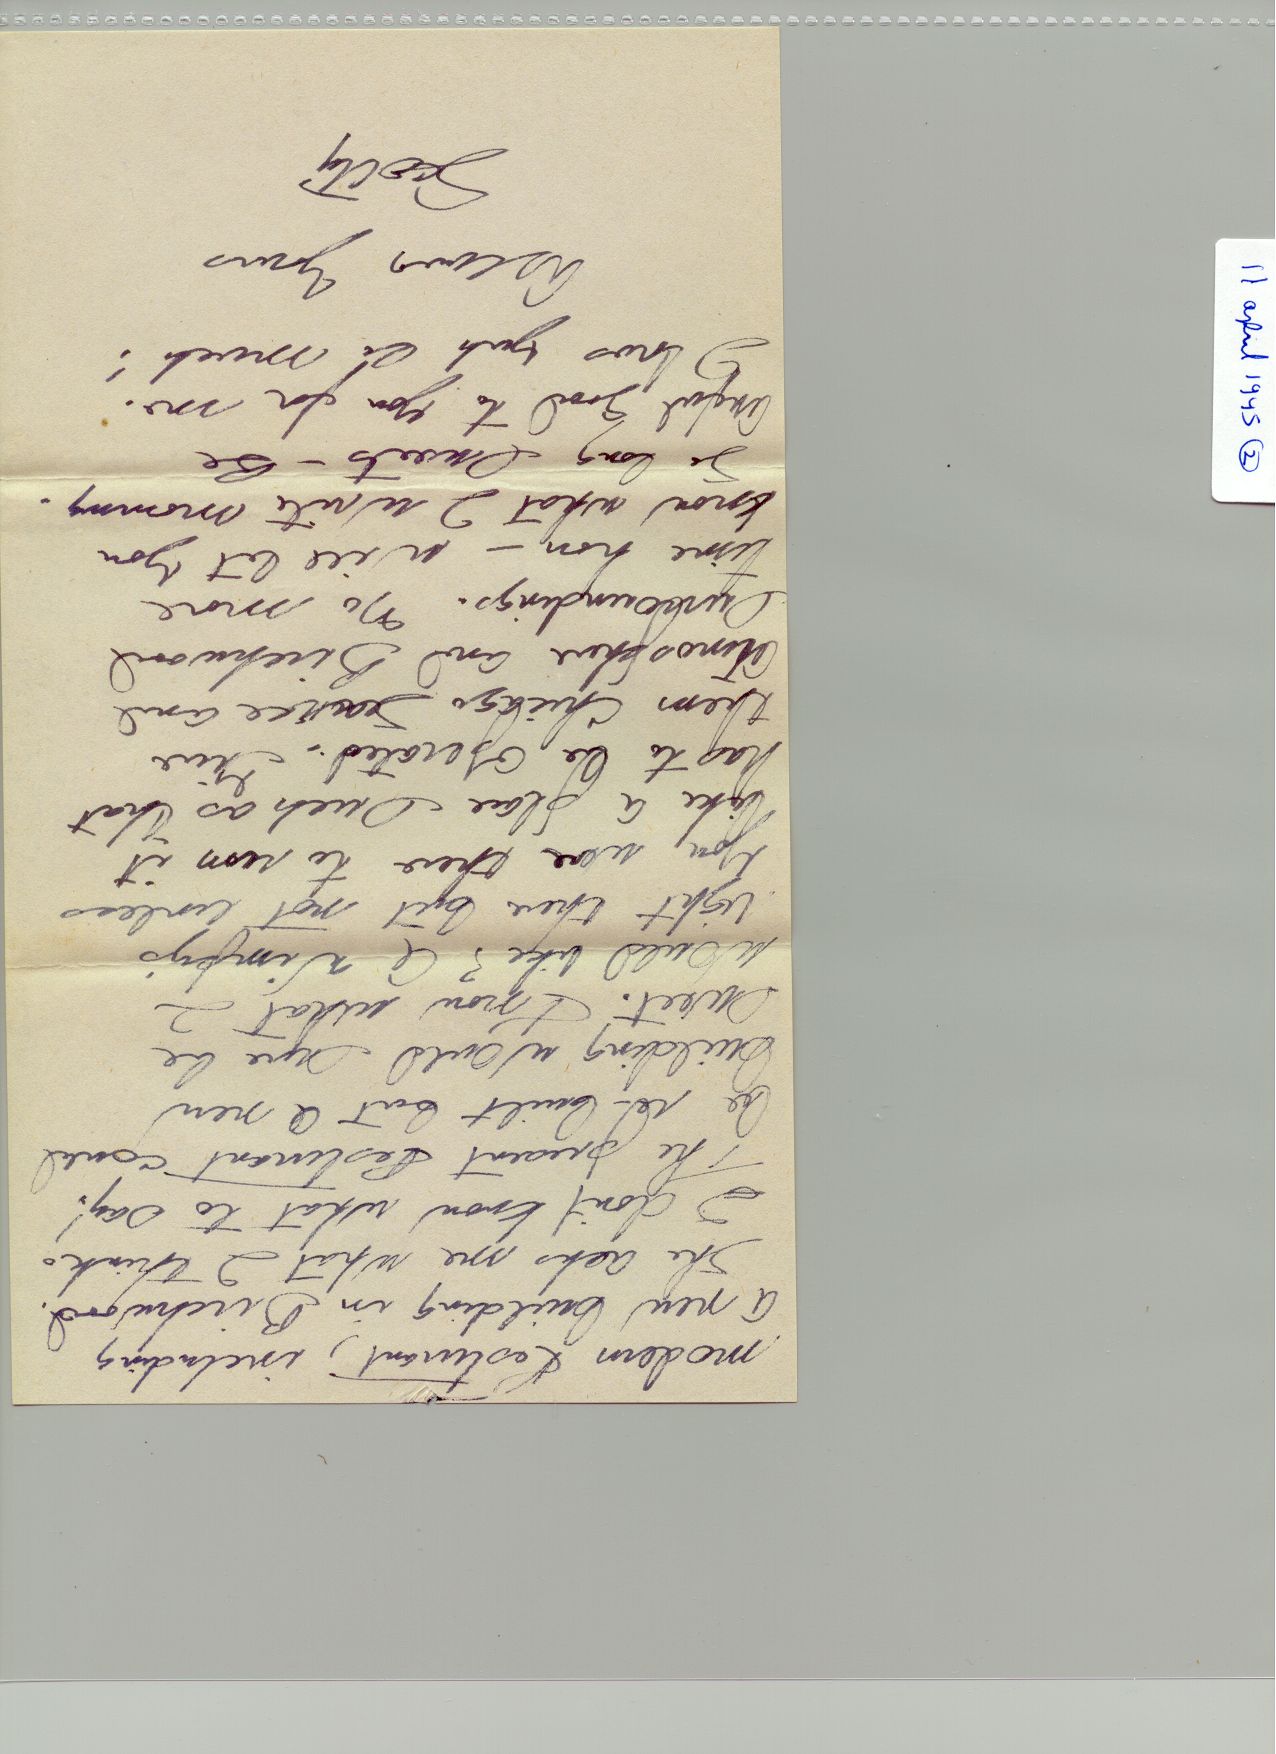 modern Resturant, including
a new building in Birchwood.
She asks me what I think.
I don't know what to say!
The present Resturant could
be re-built but a new
building would sure be
sweet. Know what I
would like? A Wimpy's
right there but not unless
you were there to run it
like a place such as that
has to be operated. Give
them Chicago Service and
atmosphere and Birchwood
surroundings. No more
time now - will let you
know what I write mommy.
So long Sweets - Be
awful good to you for me.
I love yuh so much!
Always Yours
Scotty
11 april 1945 (2)